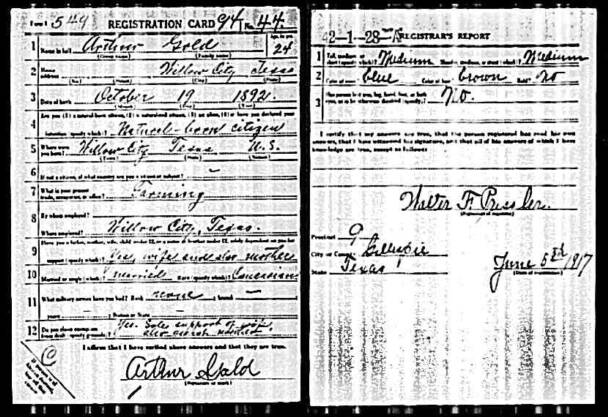 Form 1 549 REGISTRATION CARD No. 44
Age, in yrs.
1 Name in full Arthur Gold 24
(Given name) (Family name)
2 Home address Willow City Texas
(No.) (Street) (City) (State)
3 Date of birth October 19 1892
(Month) (Day) (Year)
4 Are you (1) a natural-born citizen, (2) a naturalized citizen, (3) an alien, (4) or have you declared your
intention (specify which)? Natural-born citizen
5 Where were you born? Willow City Texas U.S.
(Town) (State) (Nation)
6 If not a citizen, of what country are you a citizen or subject? -
7 What is your present trade, occupation, or office? Farming
8 By whom employed?
Where employed? Willow City, Texas.
9 Have you a father, mother, wife, child under 12, or a sister or brother under 12, solely dependent on you for
support (specify which)? wife mother
10 Married or single (which)? married Race (specify which)? Caucasian
11 What military service have you had? Rank none ; branch -
years ; Nation or State
12 Do you claim exemption from draft (specify grounds)? Yes. Sole support of wife,
I affirm that I have verified above answers and that they are true.
Arthur Gold
(Signature or mark)
42-1-28-A
REGISTRAR'S REPORT
1 Tall, medium, or short (specify which)? Medium Slender, medium, or stout (which)? Medium
2 Color of eyes blue Color of hair brown Bald? No
3 Has person lost arm, leg, hand, foot, or both eyes, or is he otherwise disabled (specify)? No.
I certify that my answers are true, that the person registered has read his own
answers, that I have witnessed his signature, and that all of his answers of which I have
knowledge are true, except as follows:
Walter F Pressler.
(Signature of registrar)
Precinct 9
City or County Gillespie
State Texas June 5th 1917
(Date of registration)